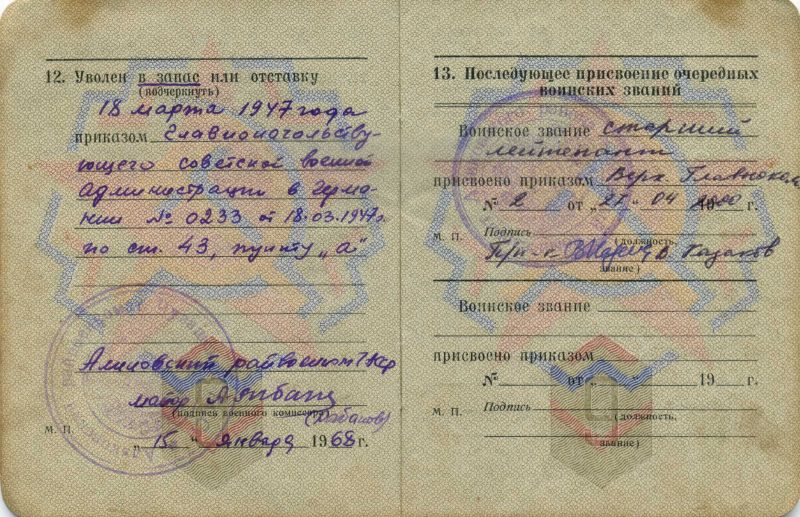 12. Уволен в запас или отставку
(подчеркнуть)
18 марта 1947 года
приказом Главноначальству-
ющего советской военной
администрации в Герма-
нии № 0233 от 18.03.1947г.
по ст. 43, пункту „а“
райвоенком
майор
(подпись военного комиссара)
(Кабанов)
М. П.
„15“ января 1968 г.
13. Последующее присвоение очередных
воинских званий
Воинское звание старший
лейтенант
присвоено приказом Верх. Главноком.
№ 2 от „ 21 “ 04 2000 г.
М. П. Подпись
(должность,
В. Казаков
звание)
Воинское звание
присвоено приказом
№ от „ “ 19 г.
М. П. Подпись
(должность,
звание)